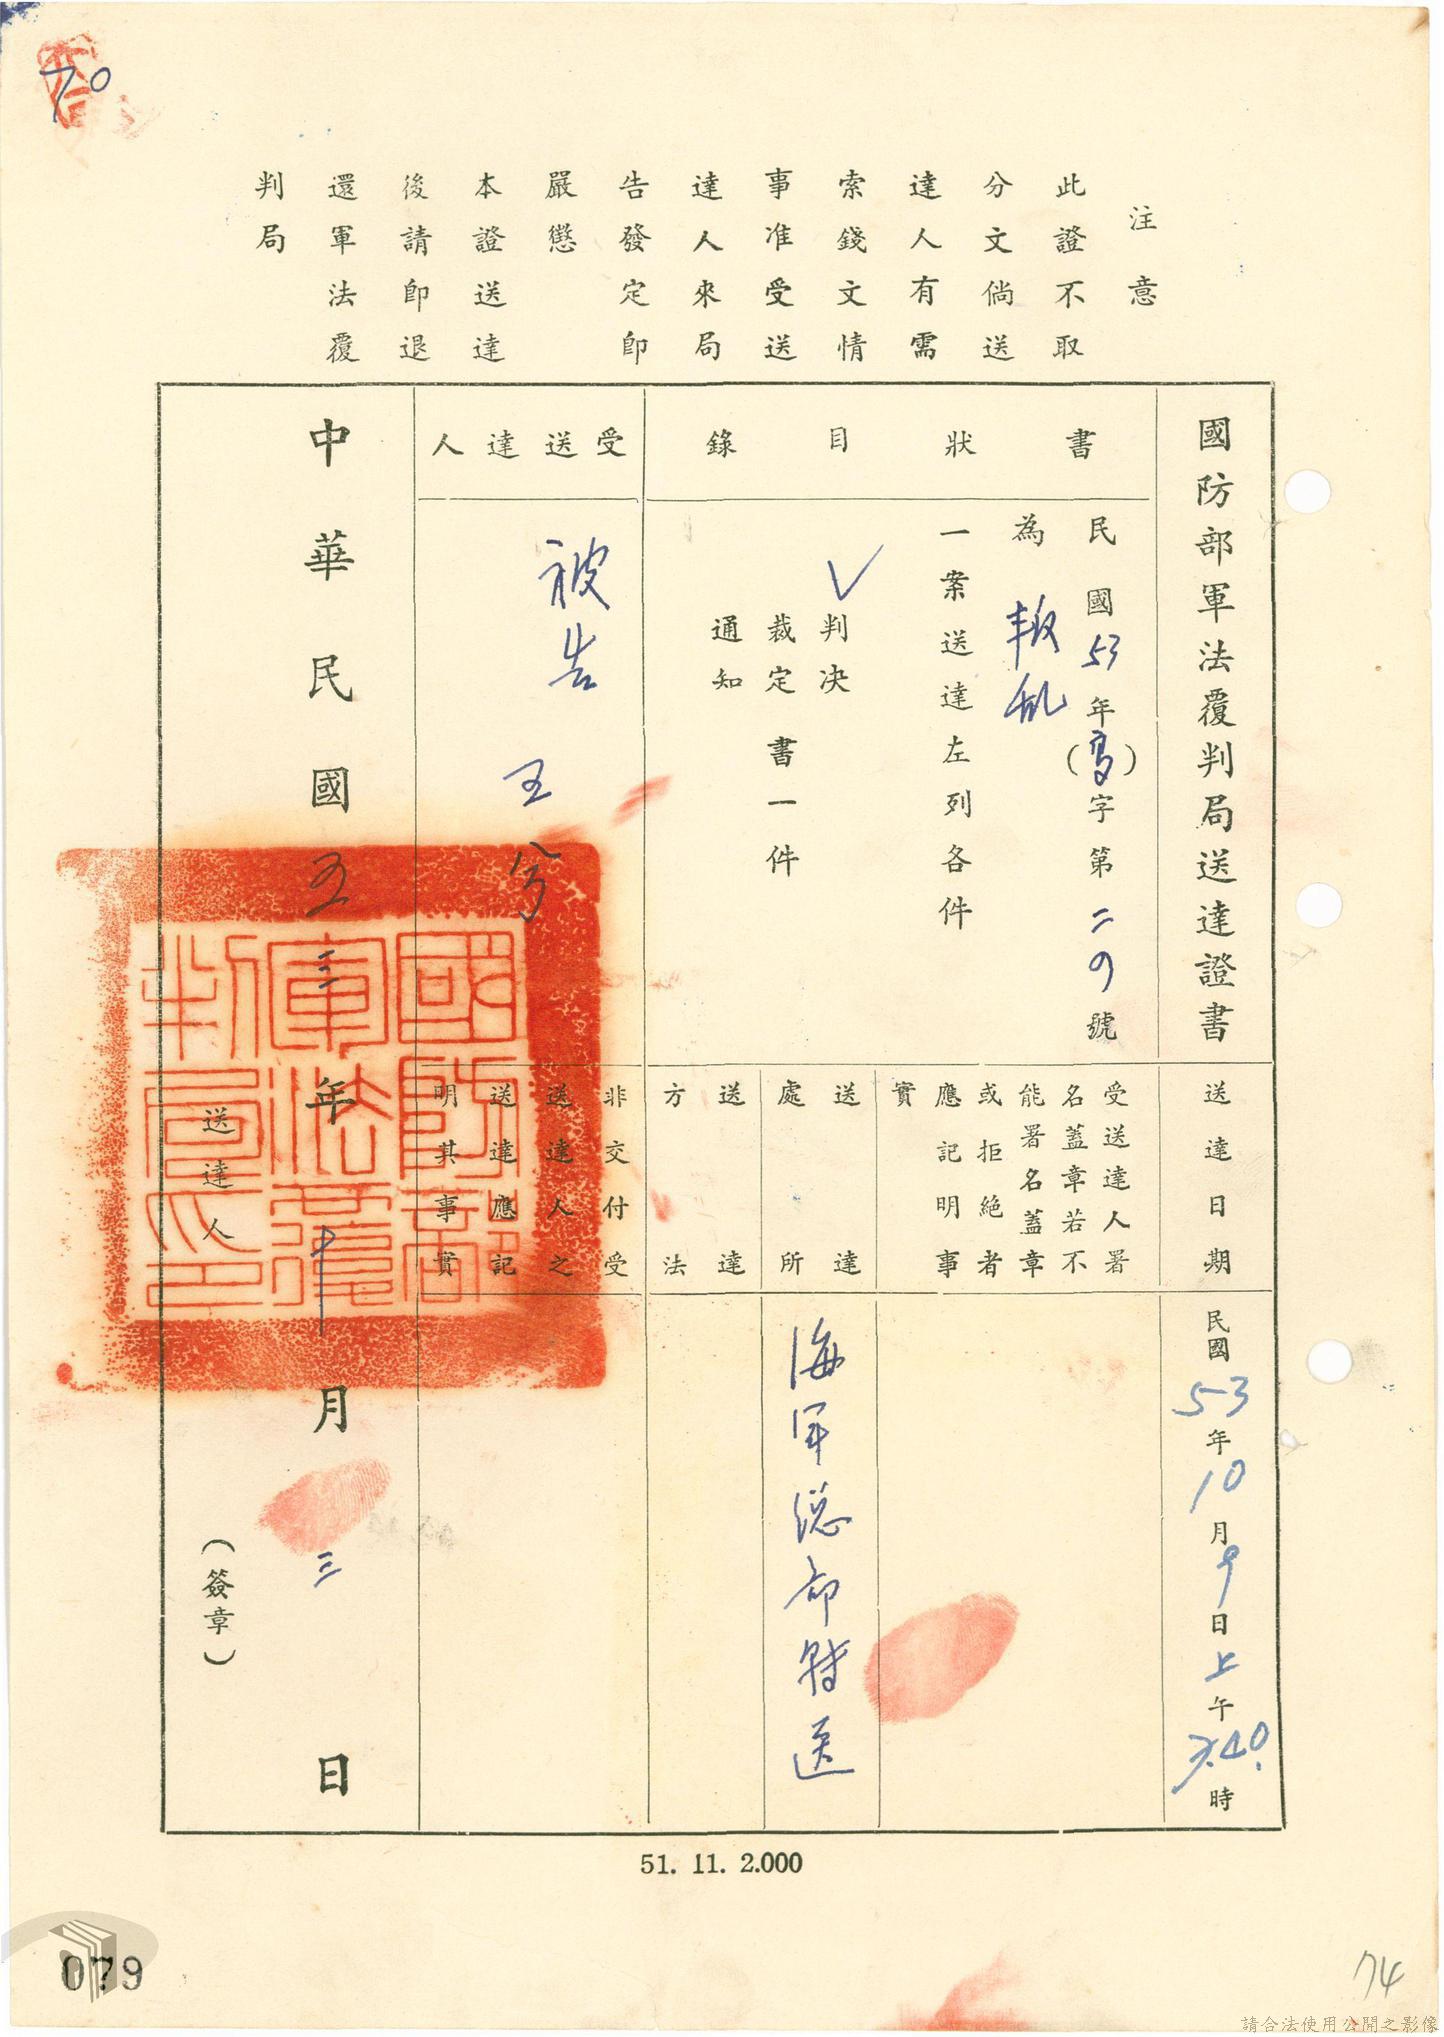 70
注意
此證不取
分文倘送
達人有需
索錢文情
事准受送
達人來局
告發定即
嚴懲
本證送達
後請即退
還軍法覆
判局
國防部軍法覆判局送達證書
書狀目錄
民國53年(高)字第二〇號
為叛亂
一案送達左列各件
✓判決
裁定書一件
通知
受送達人
被告 王兮
送達日期
民國53年10月9日上午7.40.時
受送達人署
名蓋章若不
能署名蓋章
或拒絕者
應記明事
實
送達
處所
海軍總部轉送
送達
方法
非交付受
送達人之
送達應記
明其事實
中華民國五三年十月三日
送達人
(簽章)
國防部軍法覆判局印
51. 11. 2.000
079
74
請合法使用公開之影像